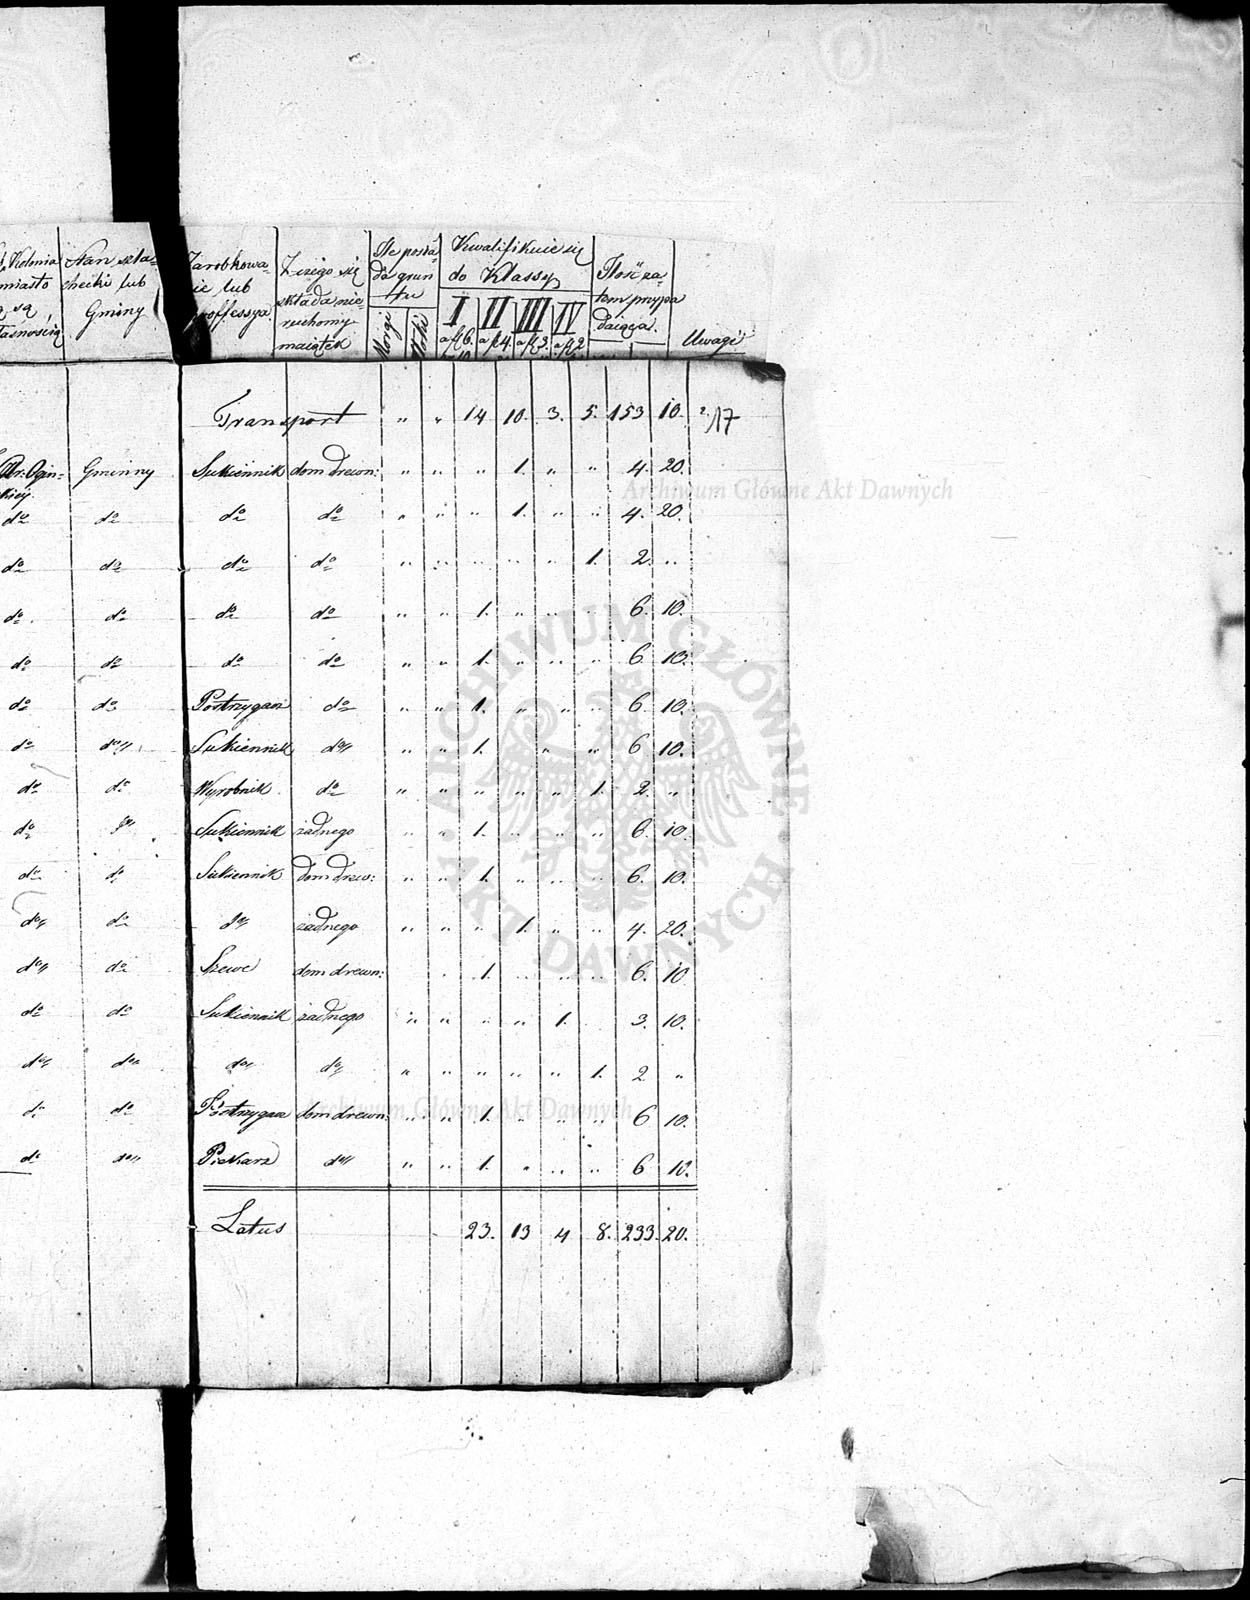 Kolonia miasto są własnością
Stan szlachecki lub Gminny
Zarobkowanie lub proffessya
Z czego się składa nieruchomy maiątek
Ile posiada gruntu
Morgi
Kwalifikuie się do Klassy
I II III IV
a fl 6. a fl 4. a fl 3. a fl 2
Ilość zatem przypadaiąca.
Uwagi
Transport " " 14 10. 3. 5. 153 10. 17
Hr: Ogin= Gminny Sukiennik dom drewn: " " " 1. " " 4. 20.
kiey
do do do do " " " 1. " " 4. 20.
do do do do " " " " " 1. 2. "
do. do do do " " 1. " " " 6. 10.
do do do do " " 1. " " " 6. 10.
do do Postrzygacz do " " 1. " " " 6. 10.
do do Sukiennik do " " 1. " " 6 10.
do do Wyrobnik do " " " " " 1. 2. "
do do Sukiennik żadnego " " 1. " " " 6. 10.
do do Sukiennik dom drew: " " 1. " " " 6. 10.
do do do żadnego " " " 1. " " 4. 20.
do do Szewc dom drewn: " 1. " " " 6. 10
do do Sukiennik żadnego " " " " 1. 3. 10.
do do do do " " " " " 1. 2 "
do do Postrzygacz dom drewn: " " 1. " " " 6 10.
do do Piekarz do " " 1. " " " 6 10.
Latus 23. 13 4 8. 233. 20.
Archiwum Główne Akt Dawnych
ARCHIWUM GŁÓWNE AKT DAWNYCH
Archiwum Główne Akt Dawnych